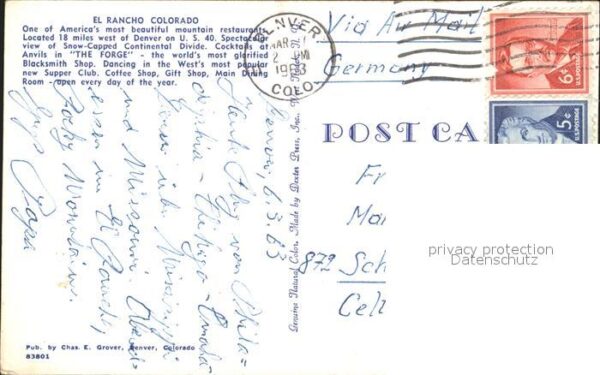 EL RANCHO COLORADO
One of America's most beautiful mountain restaurants.
Located 18 miles west of Denver on U. S. 40. Spectacular
view of Snow-Capped Continental Divide. Cocktails at
Anvils in "THE FORGE" - the world's most glorified
Blacksmith Shop. Dancing in the West's most popular
new Supper Club. Coffee Shop, Gift Shop, Main Dining
Room - open every day of the year.
Denver, 6.3.63
Heute Flug von Phila-
delphia - Chicago - Omaha
über Mississippi
und Missouri.
essen im El Rancho,
Rocky Mountains.
Papa
Pub. by Chas. E. Grover, Denver, Colorado
83801
Genuine Natural Color. Made by Dexter Press, Inc.
DENVER
MAR
PM
COLO.
Via Air Mail
Germany
6¢
U.S. POSTAGE
5¢
U.S. POSTAGE
POST CA
Fr
Ma
872 Sch
Cell
privacy protection
Datenschutz